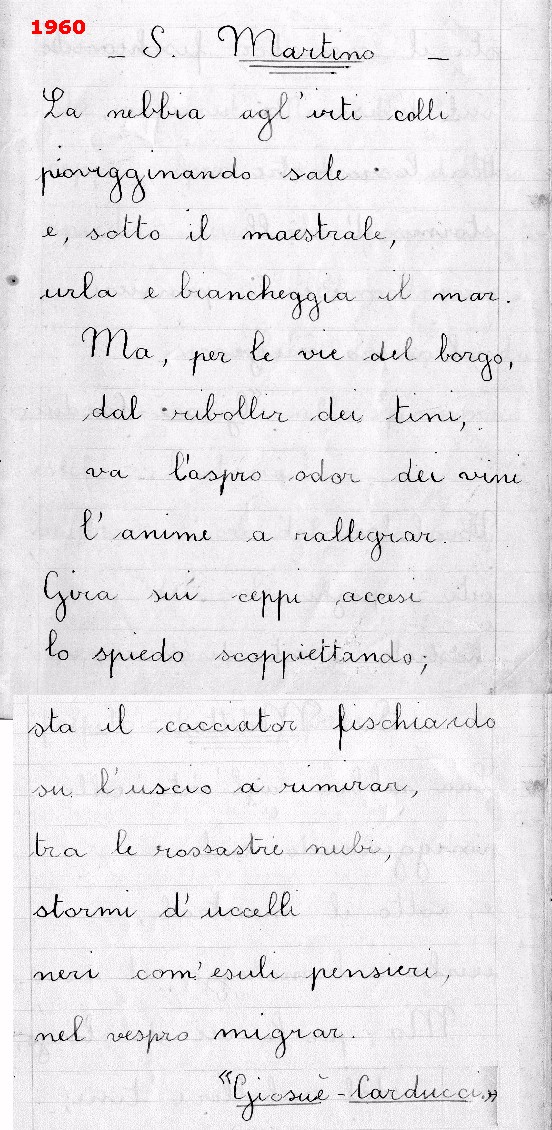 1960
- S. Martino -
La nebbia agl'irti colli
piovigginando sale
e, sotto il maestrale,
urla e biancheggia il mar.
Ma, per le vie del borgo,
dal ribollir dei tini,
va l'aspro odor dei vini
l'anime a rallegrar.
Gira sui ceppi accesi
lo spiedo scoppiettando;
sta il cacciator fischiando
su l'uscio a rimirar,
tra le rossastre nubi,
stormi d'uccelli
neri com'esuli pensieri,
nel vespro migrar.
"Giosuè - Carducci"